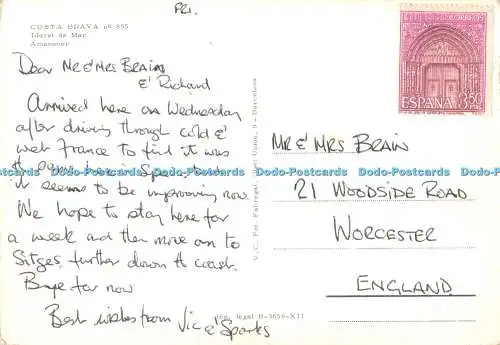 Fri.
COSTA BRAVA nº 895
Lloret de Mar.
Amanecer
Dear Mr & Mrs Brain
& Richard
Arrived here on Wednesday
after driving through cold &
wet France to find it was
the same here in Spain but
it seems to be improving now.
We hope to stay here for
a week and then move on to
Sitges further down the coast.
Bye for now
Best wishes from Vic & Sparks
V.I.C. Per. Fabregat,
9 - Barcelona
Dep. legal B-3658-XII
CORREOS
ESPAÑA 3'50
PTAS
MR & MRS BRAIN
21 WOODSIDE ROAD
WORCESTER
ENGLAND
Dodo-Postcards.com Dodo-Postcards.com Dodo-Postcards.com Dodo-Postcards.com Dodo-Postcards.com